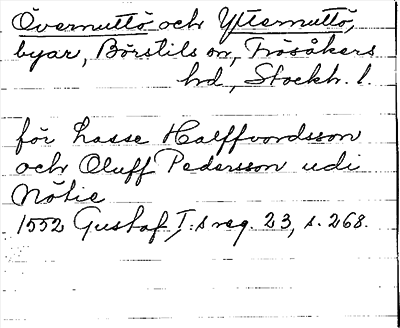 Övermuttö och Yttermuttö,
byar, Börstils sn, Frösåkers
hd, Stockh. l.
för Lasse Halffvordsson
och Oluff Pedersson udi
Nötie
1552 Gustaf I:s reg. 23, s. 268.